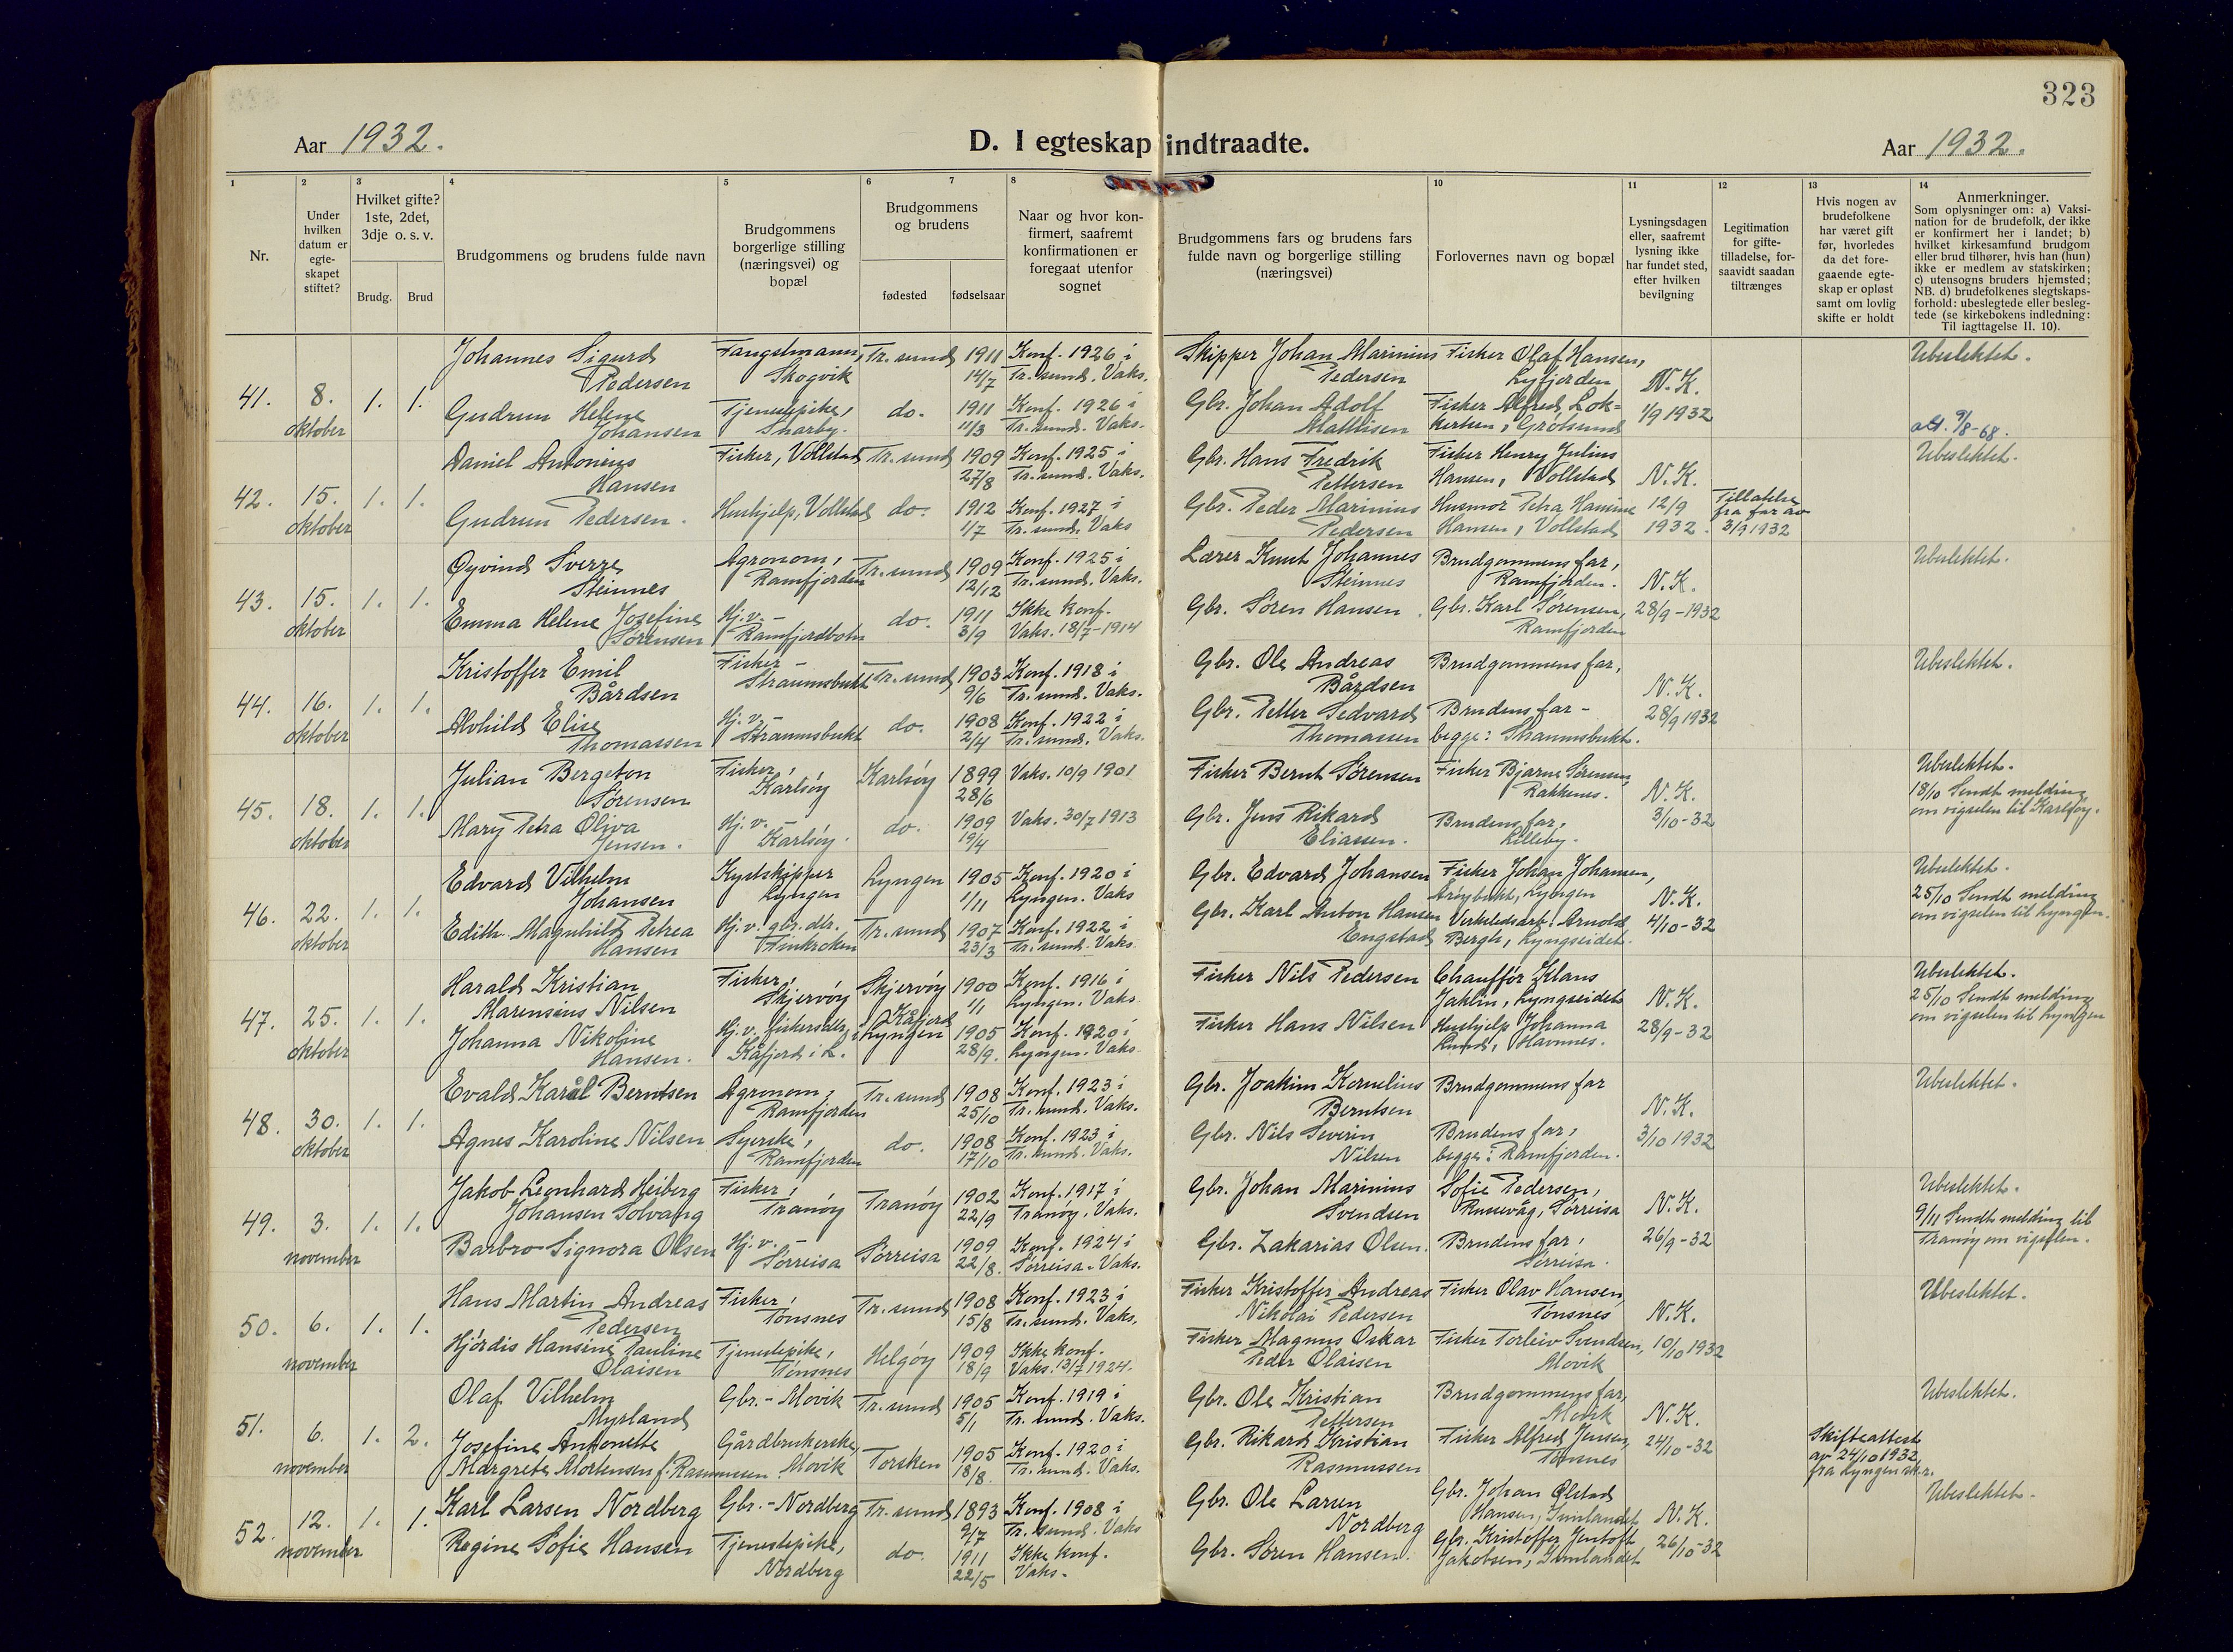 323
Aar 1932.
D. I egteskap indtraadte.
Aar 1932.
1 2 3 4 5 6 7 8 10 11 12 13 14
Nr.
Under hvilken datum er egte- skapet stiftet?
Hvilket gifte? 1ste, 2det, 3dje o. s. v.
Brudg. Brud
Brudgommens og brudens fulde navn
Brudgommens borgerlige stilling (næringsvei) og bopæl
Brudgommens og brudens
fødested fødselsaar
Naar og hvor kon- firmert, saafremt konfirmationen er foregaat utenfor sognet
Brudgommens fars og brudens fars fulde navn og borgerlige stilling (næringsvei)
Forlovernes navn og bopæl
Lysningsdagen eller, saafremt lysning ikke har fundet sted, efter hvilken bevilgning
Legitimation for gifte- tilladelse, for- saavidt saadan tiltrænges
Hvis nogen av brudefolkene har været gift før, hvorledes da det fore- gaaende egte- skap er opløst samt om lovlig skifte er holdt
Anmerkninger.
Som oplysninger om: a) Vaksi- nation for de brudefolk, der ikke er konfirmert her i landet; b) hvilket kirkesamfund brudgom eller brud tilhører, hvis han (hun) ikke er medlem av statskirken; c) utensogns bruders hjemsted; NB. d) brudefolkenes slegtskaps- forhold: ubeslegtede eller besleg- tede (se kirkebokens indledning: Til iagttagelse II. 10).
41. 8. oktober 1. 1.
Johannes Sigurd Pedersen Fangstmann, Skogvik Tr.sund 1911 14/7 Konf. 1926 i Tr.sund. Vaks. Skipper Johan Marinius Pedersen Fisker Olaf Hansen, Lyfjorden N.K. 1/9 1932 Ubeslektet.
Gudrun Helene Johansen Tjenestepike, Snarby. do. 1911 11/3 Konf. 1926 i Tr.sund. Vaks. Gbr. Johan Adolf Mathisen Fisker Alfred Lok= kertsen, Grøtsund 9/8-68.
42. 15. oktober 1. 1.
Daniel Antonius Hansen Fisker, Vollstad Tr.sund 1909 27/8 Konf. 1925 i Tr.sund. Vaks. Gbr. Hans Fredrik Pettersen Fisker Henry Julius Hansen, Vollstad N.K. 12/9 1932. Ubeslektet.
Gudrun Pedersen. Hushjelp, Vollstad do. 1912 1/7 Konf. 1927 i Tr.sund. Vaks Gbr. Peder Marinius Pedersen Husmor Petra Hansine Hansen, Vollstad Tillatelse fra far av 3/9 1932
43. 15. oktober 1. 1.
Øyvind Sverre Steinnes Agronom, Ramfjorden Tr.sund 1909 12/12 Konf. 1925 i Tr.sund. Vaks. Lærer Knut Johannes Steinnes Brudgommens far, Ramfjorden. N.K. 28/9-1932 Ubeslektet.
Emma Helene Josefine Sørensen Hj.v.- Ramfjordbotn do. 1911 3/9 Ikke konf. Vaks. 18/7-1914 Gbr. Søren Hansen. Gbr. Karl Sørensen, Ramfjorden
44. 16. oktober 1. 1.
Kristoffer Emil Bårdsen Fisker - Straumsbukt Tr.sund 1903 9/6 Konf. 1918 i Tr.sund. Vaks. Gbr. Ole Andreas Bårdsen Brudgommens far, N.K. 28/9 1932 Ubeslektet.
Alvhild Elise Thomassen Hj.v.- Straumsbukt do. 1908 2/4 Konf. 1922 i Tr.sund. Vaks. Gbr. Petter Sedvard Thomassen Brudens far - begge: Straumsbukt.
45. 18. oktober 1. 1.
Julian Bergeton Sørensen Fisker, Karlsøy Karlsøy 1899 28/6 Vaks. 10/9 1901 Fisker Bernt Sørensen Fisker Bjarne Sørensen, Rakkenes. N.K. 3/10-32 Ubeslektet. 18/10 Sendt melding om vigselen til Karlsøy.
Mary Petra Oliva Jensen. Hj.v. - Karlsøy. do. 1909 19/4 Vaks. 30/7 1913 Gbr. Jens Rikard Eliassen. Brudens far, Lilleby.
46. 22. oktober 1. 1.
Edvard Vilhelm Johansen Kystskipper Lyngen Lyngen 1905 1/11 Konf. 1920 i Lyngen. Vaks Gbr. Edvard Johansen Fisker Johan Johansen, Årøybukt, Lyngen N.K. 4/10-32 Ubeslektet. 25/10 Sendt melding om vigselen til Lyngen.
Edith Magnhild Petrea Hansen Hj.v. gbr. dtr. Finkroken Tr.sund 1907 23/3 Konf. 1922 i Tr.sund. Vaks. Gbr. Karl Anton Hansen Engstad Verkstedsarb. Arnold Bergh, Lyngseidet.
47. 25. oktober 1. 1.
Harald Kristian Marensius Nilsen Fisker, Skjervøy Skjervøy 1900 1/1 Konf. 1916 i Lyngen. Vaks. Fisker Nils Pedersen Chauffør Klaus Jaklin, Lyngseidet N.K. 28/9-32 Ubeslektet. 25/10 Sendt melding om vigselen til Lyngen
Johanna Nikoline Hansen. Hj.v. fiskersdtr, Kåfjord i L. Kåfjord i Lyngen 1905 28/9. Konf. 1920 i Lyngen. Vaks. Fisker Hans Nilsen Hushjelp Johanna Lund, Havnnes.
48. 30. oktober 1. 1.
Evald Karål Berntsen Agronom, Ramfjorden Tr.sund 1908 25/10 Konf. 1923 i Tr.sund. Vaks. Gbr. Joakim Kornelius Berntsen Brudgommens far N.K. 3/10 1932 Ubeslektet.
Agnes Karoline Nilsen Syerske, Ramfjorden do. 1908 17/10 Konf. 1923 i Tr.sund. Vaks. Gbr. Nils Severin Nilsen Brudens far, begge: Ramfjorden.
49. 3. november 1. 1.
Jakob Leonhard Heiberg Johansen Solvang Fisker, Tranøy Tranøy 1902 22/9 Konf. 1917 i Tranøy. Vaks. Gbr. Johan Marinius Svendsen Sofie Pedersen, Russevåg, Sørreisa N.K. 26/9-32 Ubeslektet. 9/11 Sendt melding til Tranøy om vigselen.
Barbro Signora Olsen Hj.v. - Sørreisa Sørreisa 1909 22/8. Konf. 1924 i Sørreisa. Vaks. Gbr. Zakarias Olsen. Brudens far, Sørreisa.
50. 6. november 1. 1.
Hans Martin Andreas Pedersen Fisker, Tønsnes Tr.sund 1908 15/8 Konf. 1923 i Tr.sund. Vaks. Fisker Kristoffer Andreas Nikolai Pedersen Fisker Olav Hansen, Tønsnes N.K. 10/10 1932 Ubeslektet.
Hjørdis Hansine Pauline Olaisen Tjenestepike, Tønsnes Helgøy 1909 18/9 Ikke konf. Vaks. 13/7 1924. Fisker Magnus Oskar Peder Olaisen Fisker Torleiv Svendsen, Movik
51. 6. november 1. 2.
Olaf Vilhelm Myrland Gbr. - Movik Tr.sund 1905 5/1 Konf. 1919 i Tr.sund. Vaks. Gbr. Ole Kristian Pettersen Brudgommens far, Movik N.K. 24/10-32 Ubeslektet.
Josefine Antonette Margrete Mortensen f. Rasmussen Gårdbrukerske, Movik Torsken 1905 18/8. Konf. 1920 i Tr.sund. Vaks. Gbr. Rikard Kristian Rasmussen Fisker Alfred Jensen, Tønsnes Skifteattest av 24/10 1932 fra Lyngen sk.r.
52. 12. november 1. 1.
Karl Larsen Nordberg Gbr. - Nordberg Tr.sund 1893 9/7 Konf. 1908 i Tr.sund. Vaks Gbr. Ole Larsen Nordberg Gbr. Johan Ølstad Hansen, N.K. 26/10-32 Ubeslektet.
Regine Sofie Hansen Tjenestepike, Nordberg do. 1911 22/5 Ikke konf. Vaks. Gbr. Søren Hansen. Gbr. Kristoffer Jentoft Jakobsen,